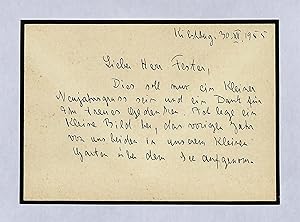 30 XII 1955
Lieber Herr Fester,
Dies soll nur ein kleiner
Neujahrsgruss sein und ein Dank für
Ihr treues Gedenken. Ich lege ein
kleines Bild bei, das voriges Jahr
von uns beiden in unserem kleinen
Garten über dem See aufgenom-